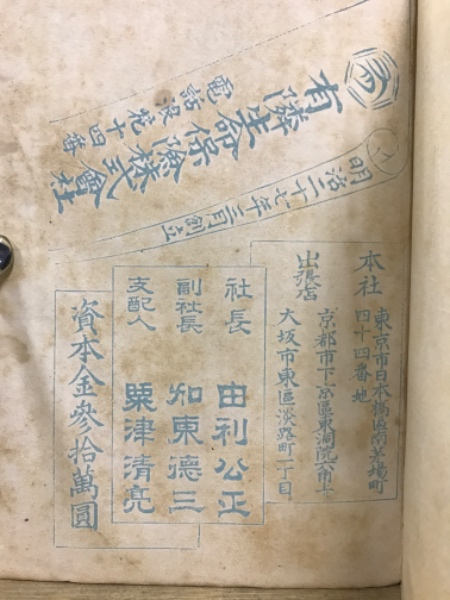 有隣生命保険株式會社
電話浪花十四番
明治二十七年三月創立
本社
東京市日本橋區南茅場町
四十四番地
出張店
京都市下京區東洞院六角下
大坂市東區淡路町一丁目
社長 由利公正
副社長 知東德三
支配人 粟津清亮
資本金參拾萬圓